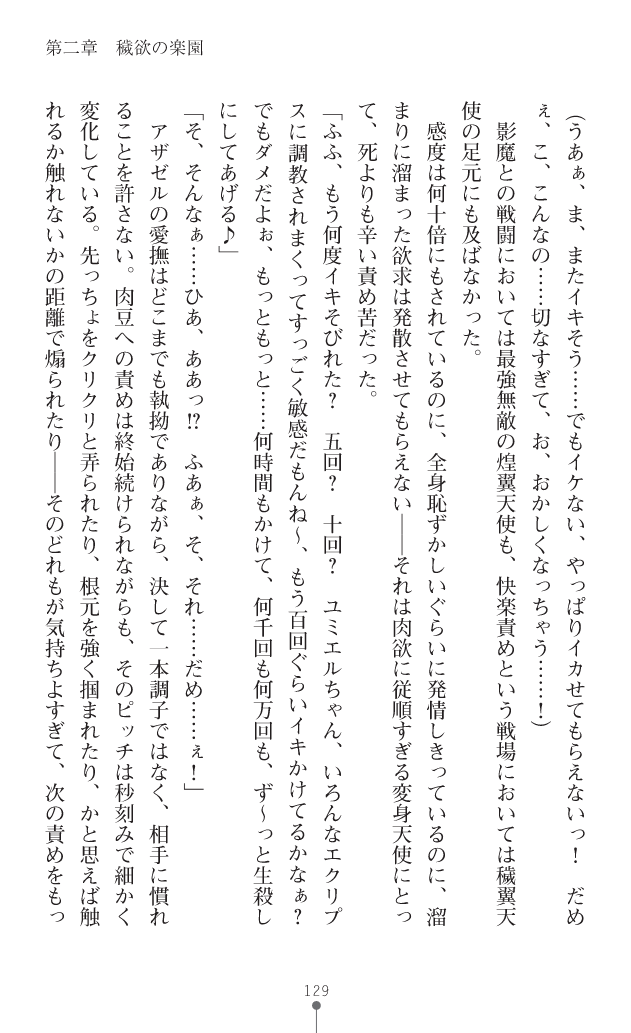 第二章　穢欲の楽園
（うあぁ、ま、またイキそう……でもイケない、やっぱりイカせてもらえないっ！　だめ
ぇ、こ、こんなの……切なすぎて、お、おかしくなっちゃう……！）
　影魔との戦闘においては最強無敵の煌翼天使も、快楽責めという戦場においては穢翼天
使の足元にも及ばなかった。
　感度は何十倍にもされているのに、全身恥ずかしいぐらいに発情しきっているのに、溜
まりに溜まった欲求は発散させてもらえない――それは肉欲に従順すぎる変身天使にとっ
て、死よりも辛い責め苦だった。
「ふふ、もう何度イキそびれた？　五回？　十回？　ユミエルちゃん、いろんなエクリプ
スに調教されまくってすっごく敏感だもんね～、もう百回ぐらいイキかけてるかなぁ？
でもダメだよぉ、もっともっと……何時間もかけて、何千回も何万回も、ず～っと生殺し
にしてあげる♪」
「そ、そんなぁ……ひあ、ああっ!?　ふあぁ、そ、それ……だめ……ぇ！」
　アザゼルの愛撫はどこまでも執拗でありながら、決して一本調子ではなく、相手に慣れ
ることを許さない。肉豆への責めは終始続けられながらも、そのピッチは秒刻みで細かく
変化している。先っちょをクリクリと弄られたり、根元を強く掴まれたり、かと思えば触
れるか触れないかの距離で煽られたり――そのどれもが気持ちよすぎて、次の責めをもっ
129